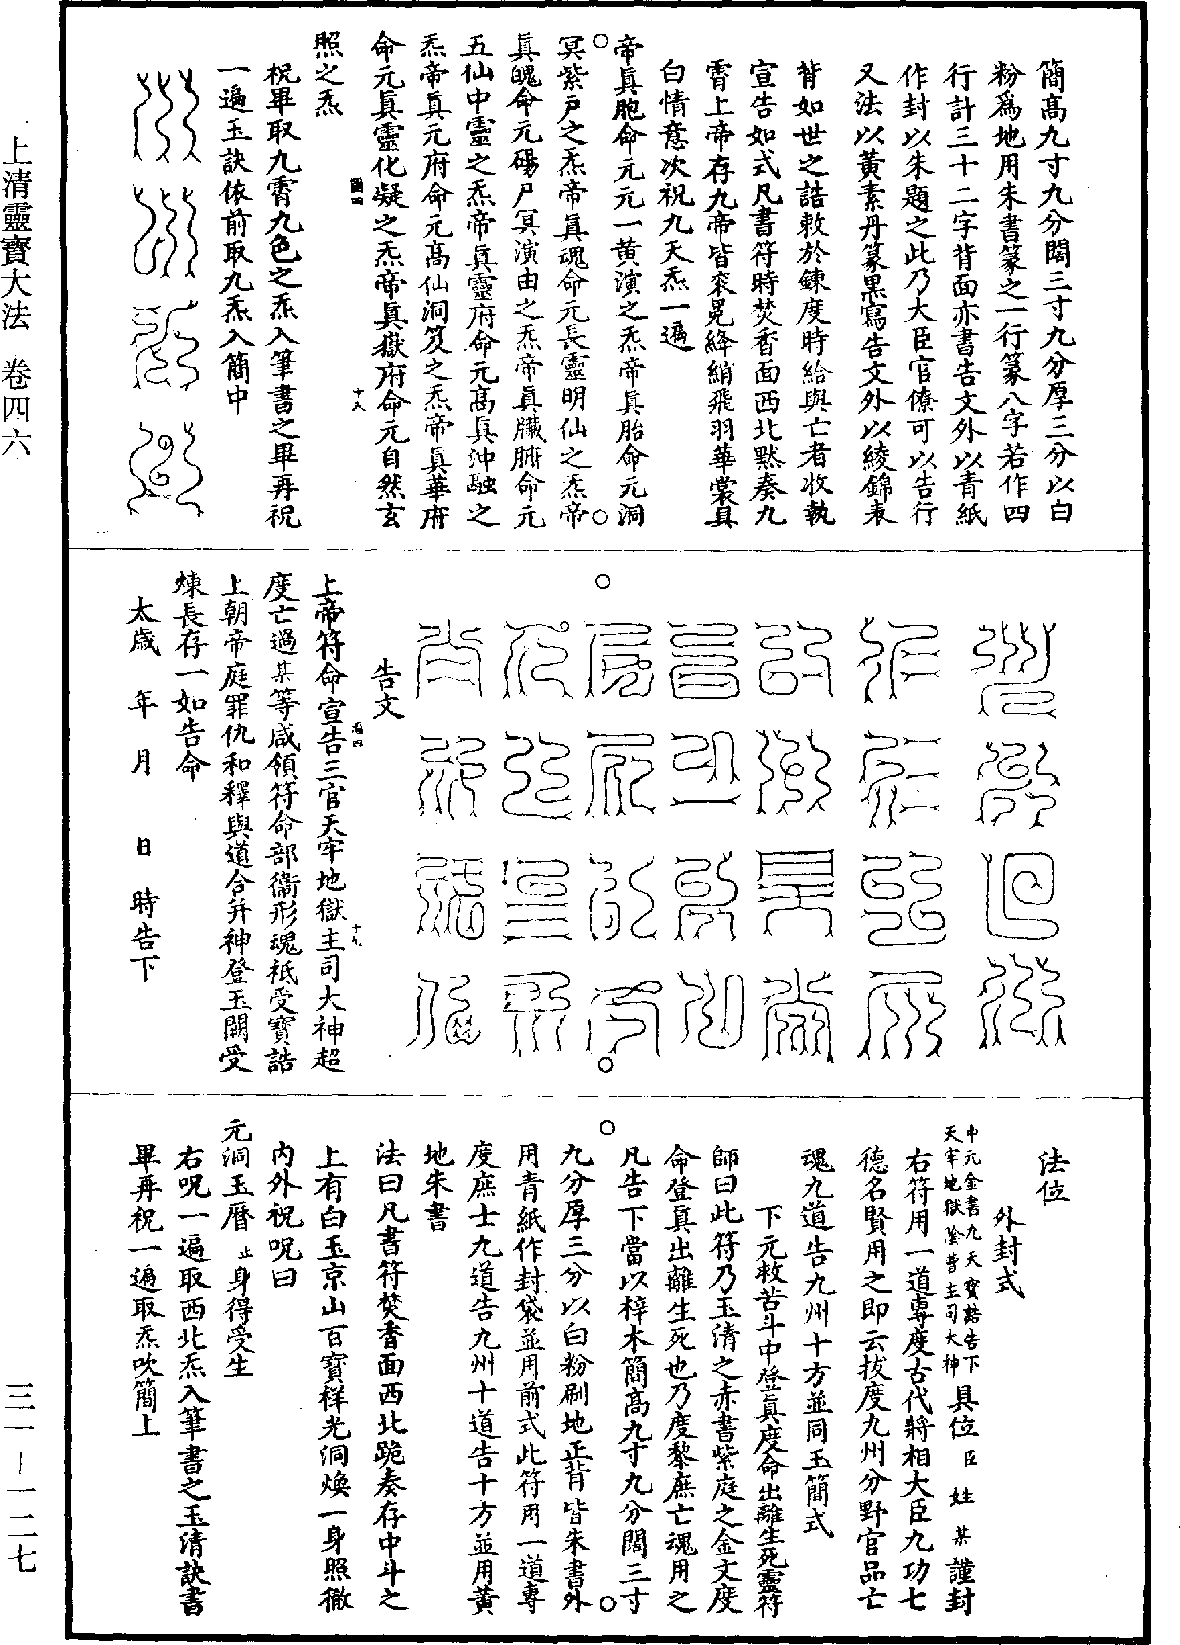 簡高九寸九分闊三寸九分厚三分以白
粉爲地用朱書篆之一行篆八字若作四
行計三十二字背面亦書告文外以青紙
作封以朱題之此乃大臣官僚可以告行
又法以黃素丹篆黑寫告文外以綾錦表
背如世之誥敕於鍊度時給與亡者收執
宣告如式凡書符時焚香面西北默奏九
霄上帝存九帝皆衮冕絳綃飛羽華裳具
白情意次祝九天炁一遍
帝眞胞命元元一黄演之炁帝眞胎命元洞
冥紫戸之炁帝眞魂命元長靈明仙之炁帝
眞魄命元碭尸冥演由之炁帝眞臟腑命元
五仙中靈之炁帝眞靈府命元高眞沖融之
炁帝眞元府命元高仙洞笈之炁帝眞華府
命元眞靈化凝之炁帝眞嶽府命元自然玄
照之炁
祝畢取九霄九色之炁入筆書之畢再祝
一遍玉訣依前取九炁入簡中
告文
上帝符命宣告三官天牢地獄主司大神超
度亡過某等咸領符命部衞形魂祗受寶誥
上朝帝庭罪仇和釋與道合并神登玉闕受
煉長存一如告命
太歲　年　月　　日　時告下
法位
外封式
中元金書九天寶誥告下
天牢地獄冥普主司大神　具位臣　姓　某　謹封
右符用一道專度古代將相大臣九功七
德名賢用之即云拔度九州分野官品亡
魂九道告九州十方並同玉簡式
下元救苦斗中登眞度命出離生死靈符
師曰此符乃玉清之赤書紫庭之金文度
命登眞出離生死也乃度黎庶亡魂用之
凡告下當以梓木簡高九寸九分闊三寸
九分厚三分以白粉刷地正背皆朱書外
用青紙作封袋並用前式此符用一道專
度庶士九道告九州十道告十方並用黄
地朱書
法曰凡書符焚香面西北跪奏存中斗之
上有白玉京山百寶祥光洞煥一身照徹
内外祝呪曰
元洞玉曆　止　身得受生
右呪一遍取西北炁入筆書之玉清訣書
畢再祝一遍取炁吹簡上
上清靈寶大法　卷四六
三一－一二七